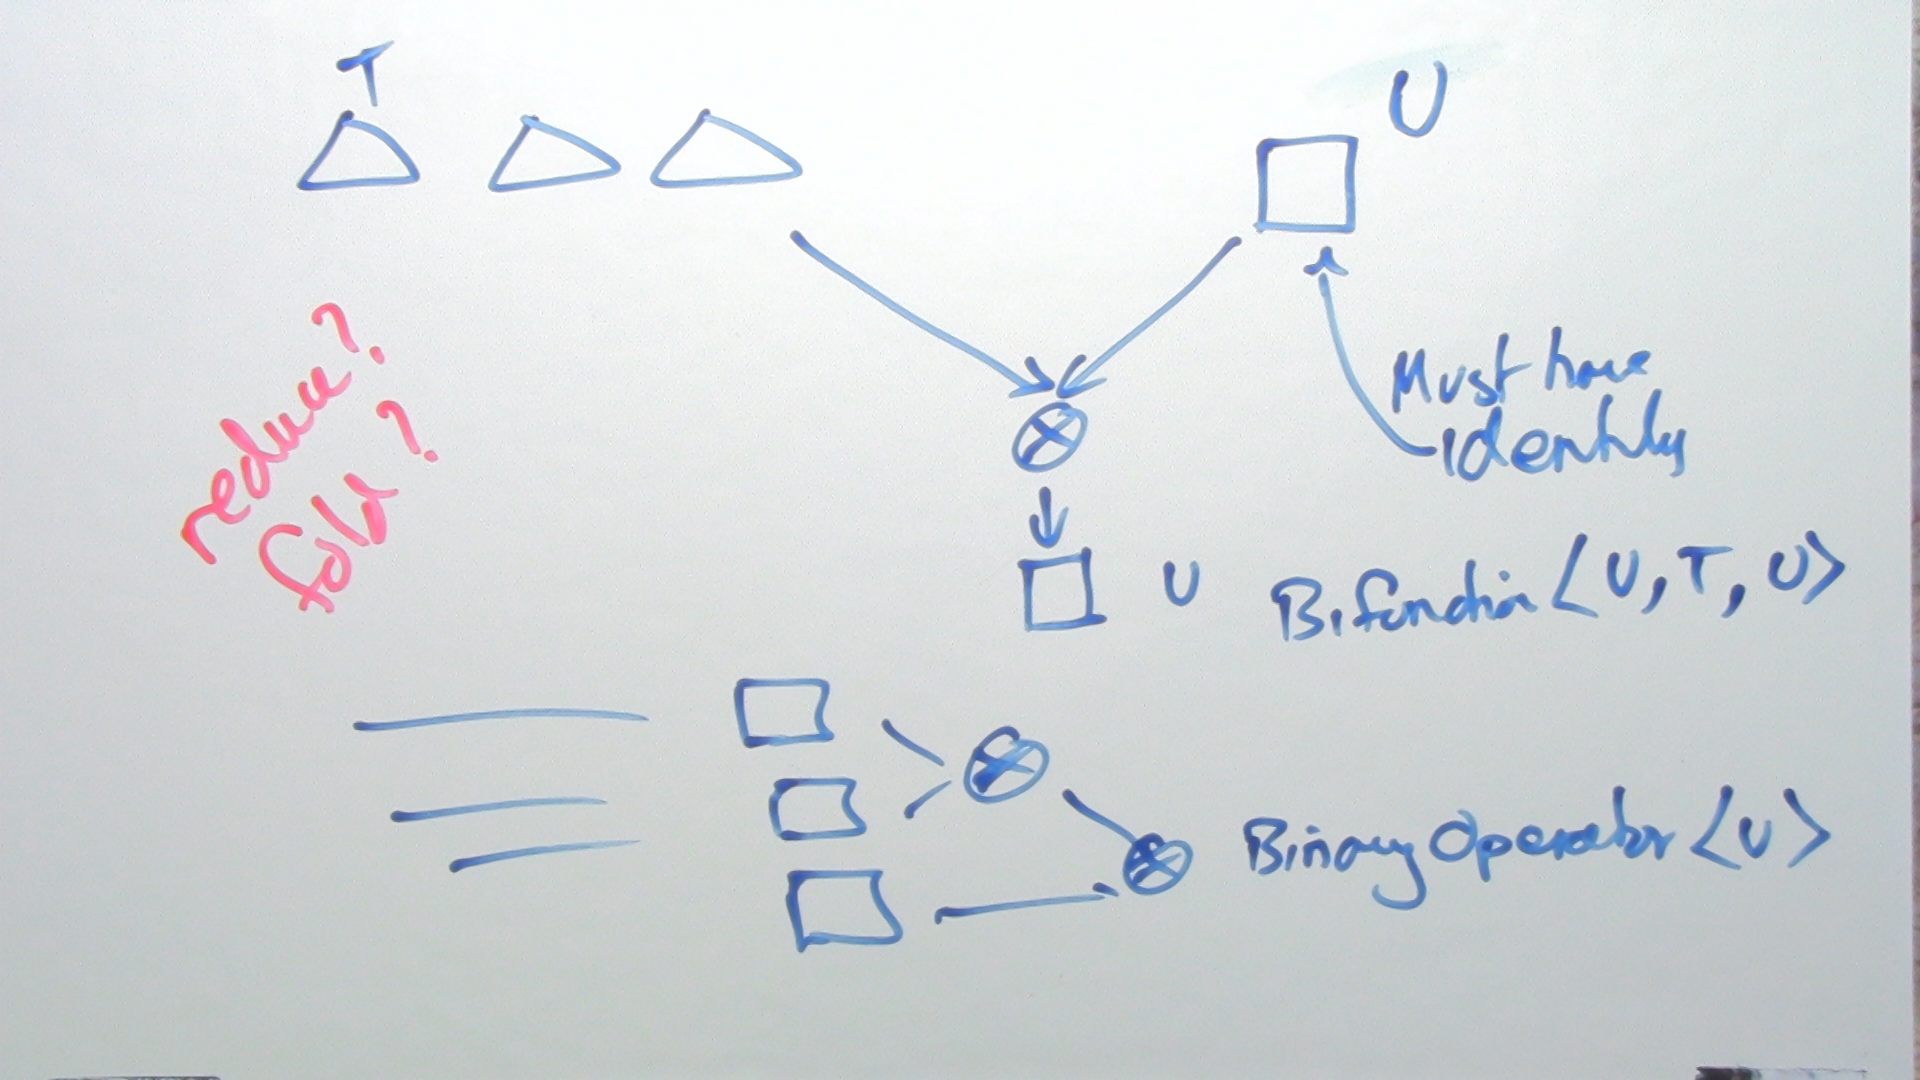 T
U
reduce?
fold?
Must have
identity
U
Bifunction <U, T, U>
Binary Operator <U>